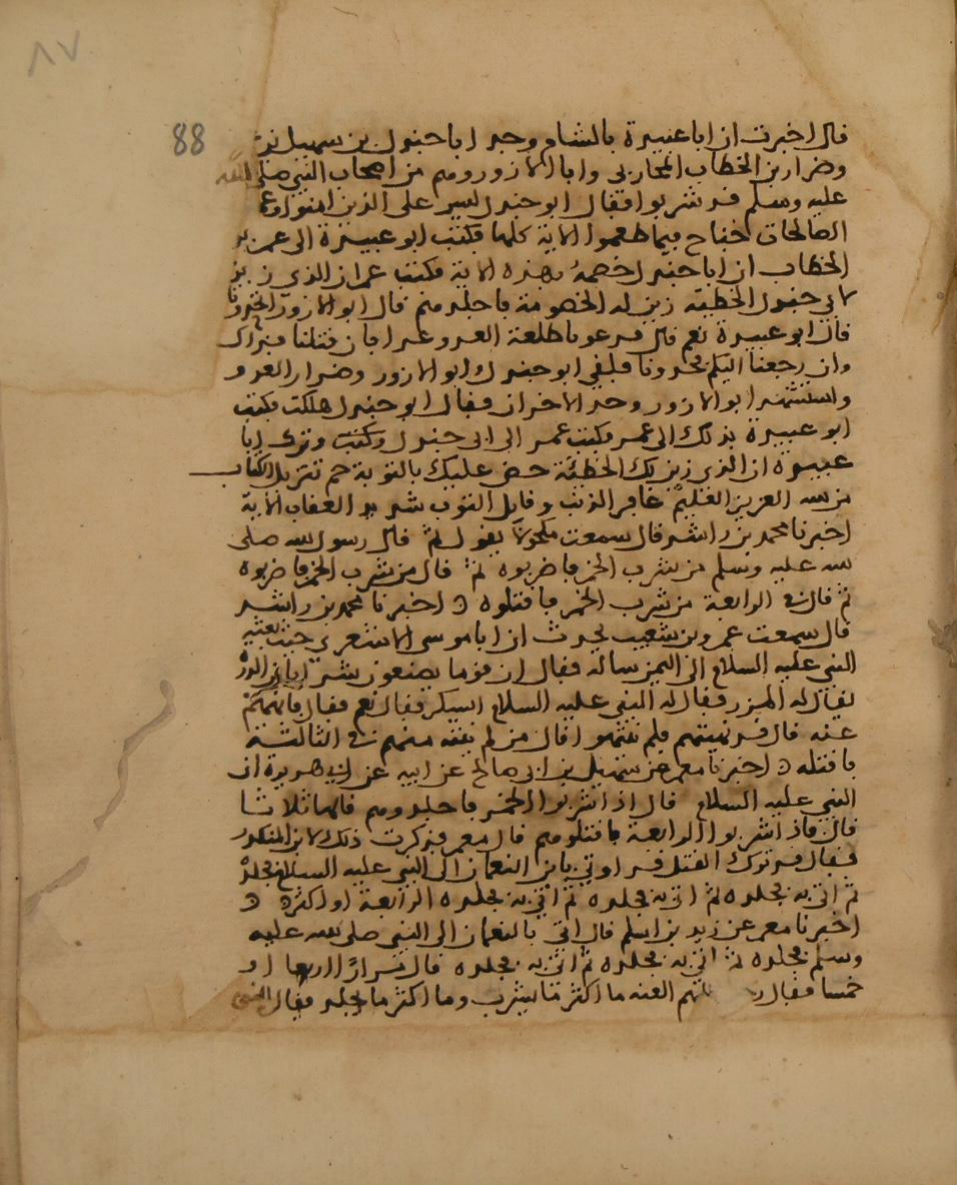 ٨٧
88
قال اخبرت ان ابا عبيدة بالشام وجد ابا جندل بن سهيل بن
وضرار بن الخطاب المحاربي وابا الازور وهم من اصحاب النبي صلى الله
عليه وسلم قد شربوا فقال ابو جندل ليس على الذين امنوا وعملوا
الصالحات جناح فيما طعموا الاية كلها فكتب ابو عبيدة الى عمر بن
الخطاب ان ابا جندل خصمني بهذه الاية فكتب عمر ان الذي زين
لابي جندل الخطيئة زين له الخصومة فاحددهم قال ابو الازور اتحدونا
قال ابو عبيدة نعم قال فدعونا نلقى العدو غدا فان قتلنا فذاك
وان رجعنا اليكم تحدونا فلقي ابو جندل وابو الازور وضرار العدو
واستشهد ابو الازور وحد الاخران فقال ابو جندل هلكت فكتب
ابو عبيدة بذلك الى عمر فكتب عمر الى ابي جندل وكتب وترك ابا
عبيدة ان الذي زين لك الخطيئة حض عليك بالتوبة حم تنزيل الكتاب
من الله العزيز العليم غافر الذنب وقابل التوب شديد العقاب الاية
اخبرنا محمد بن راشد قال سمعت مكحولا يقول ثم قال رسول الله صلى
الله عليه وسلم من شرب الخمر فاضربوه ثم قال من شرب الخمر فاضربوه
ثم قال في الرابعة من شرب الخمر فاقتلوه اخبرنا محمد بن راشد
قال سمعت عمرو بن شعيب يحدث ان ابا موسى الاشعري حيث بعثه
النبي عليه السلام الى اليمن ساله فقال ان قوما يصنعون شرابا من الذرة
يقال له المزر فقال له النبي عليه السلام ايسكر قال نعم فقال فانههم
عنه قال قد نهيتهم فلم ينتهوا قال من لم ينته منهم في الثالثة
فاقتله اخبرنا معمر عن سهيل بن ابي صالح عن ابيه عن ابي هريرة ان
النبي عليه السلام قال اذا شربوا الخمر فاجلدوهم قالها ثلاثا
قال فاذا شربوا الرابعة فاقتلوهم قال معمر فذكرت ذلك لابن المنكدر
فقال قد ترك القتل قد اوتي بابن النعمان الى النبي عليه السلام فجلده
ثم اتى به فجلده ثم اتى به فجلده ثم اتى به فجلده الرابعة او اكثر
اخبرنا معمر عن زيد بن اسلم قال اتي بالنعمان الى النبي صلى الله عليه
وسلم فجلده ثم اتى به فجلده ثم اتى به فجلده قال مرارا اربعا او
خمسا فقال رجل اللهم العنه ما اكثر ما يشرب وما اكثر ما يجلد فقال النبي